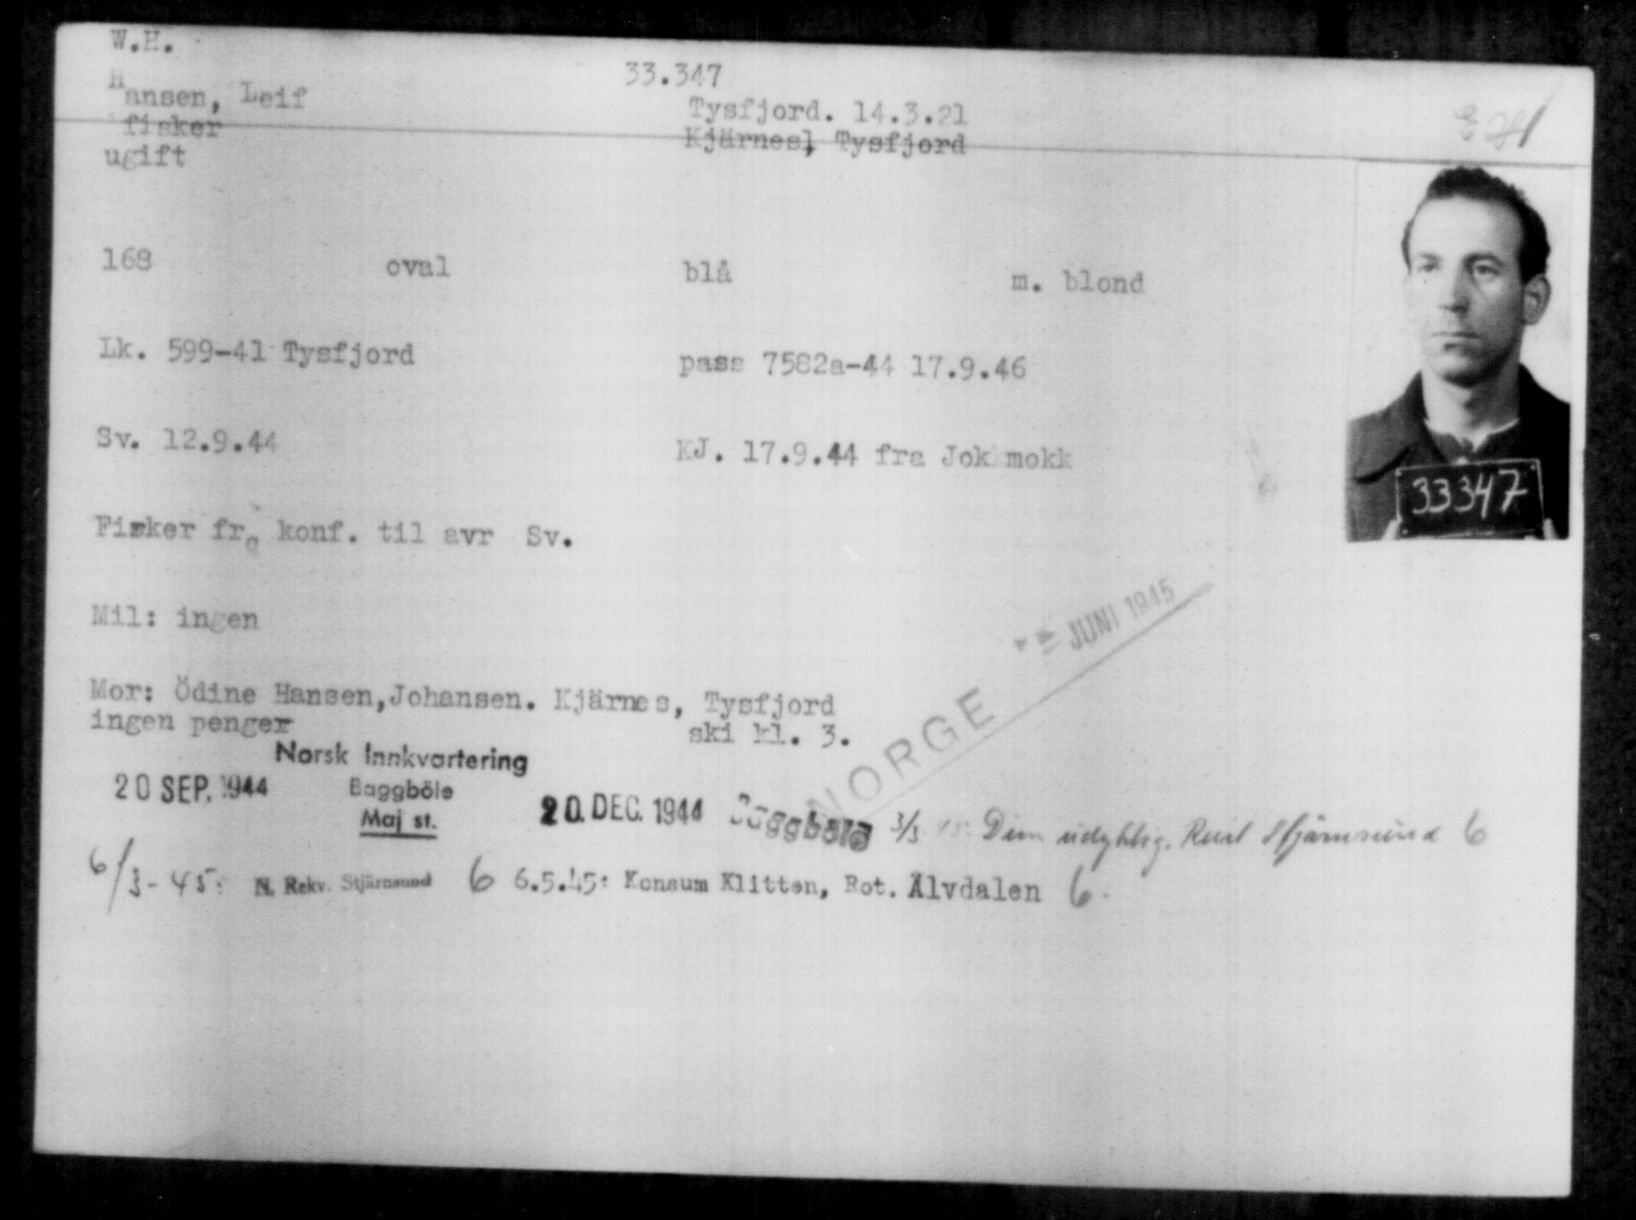 W.H.
Hansen, Leif 33.347
Tysfjord. 14.3.21
fisker Kjärnes, Tysfjord
ugift
168 oval blå m. blond
Lk. 599-41 Tysfjord pass 7582a-44 17.9.46
Sv. 12.9.44 KJ. 17.9.44 fra Jokkmokk
33347
Fisker fra konf. til avr Sv.
Mil: ingen
JUNI 1945
NORGE
Mor: Ödine Hansen, Johansen. Kjärnes, Tysfjord
ingen penger ski kl. 3.
Norsk Innkvartering
20 SEP. 1944 Baggböle 20. DEC. 1944 Baggböle 3/3 45: Dim udyktig. Reist Stjärnsund 6
Maj st.
6/3-45: N. Rekv. Stjärnsund 6 6.5.45: Konsum Klitten, Rot. Älvdalen 6